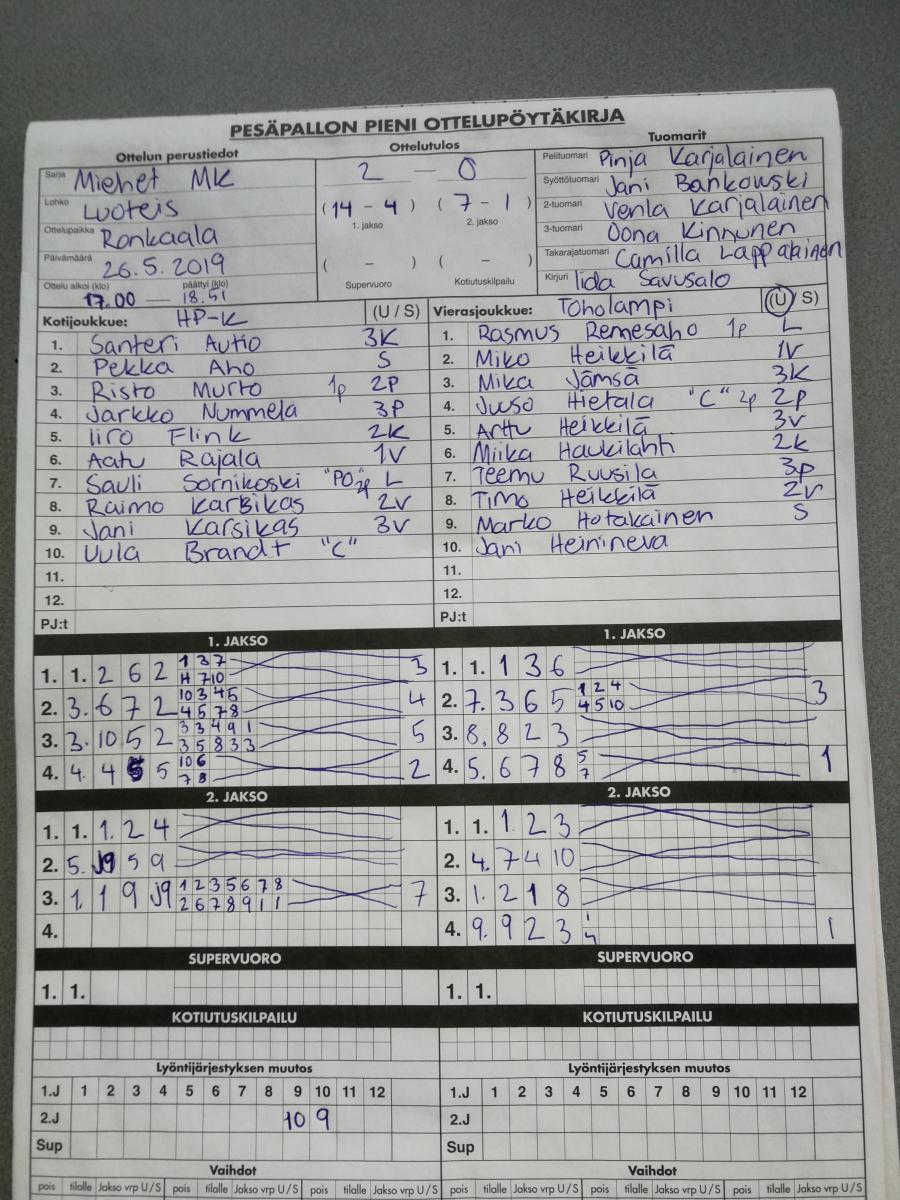 PESÄPALLON PIENI OTTELUPÖYTÄKIRJA
Ottelun perustiedot
Sarja Miehet MK
Lohko Luoteis
Ottelupaikka Ronkaala
Päivämäärä 26.5.2019
Ottelu alkoi (klo) päättyi (klo)
17.00 — 18.51
Ottelutulos
2 — 0
(14 - 4) (7 - 1)
1. jakso 2. jakso
( - ) ( - )
Supervuoro Kotiutuskilpailu
Tuomarit
Pelituomari Pinja Karjalainen
Syöttötuomari Jani Bankowski
2-tuomari Venla Karjalainen
3-tuomari Oona Kinnunen
Takarajatuomari Camilla Lappalainen
Kirjuri Iida Savusalo
Kotijoukkue: HP-K (U / S)
1. Santeri Autio 3K
2. Pekka Aho S
3. Risto Murto 1p 2P
4. Jarkko Nummela 3P
5. Iiro Flink 2K
6. Aatu Rajala 1V
7. Sauli Sornikoski "PO" 2p L
8. Raimo Karsikas 2V
9. Jani Karsikas 3V
10. Uula Brandt "C"
11.
12.
PJ:t
Vierasjoukkue: Toholampi (U / S)
1. Rasmus Remesaho 1p L
2. Miko Heikkilä 1V
3. Mika Jämsä 3K
4. Juuso Hietala "C" 2p 2p
5. Arttu Heikkilä 3v
6. Miika Haukilahti 2k
7. Teemu Ruusila 3p
8. Timo Heikkilä 2v
9. Marko Hotakainen S
10. Jani Heinineva
11.
12.
PJ:t
1. JAKSO
1. 1. 2 6 2 1 3 7 3
H 7 10
2. 3. 6 7 2 10 3 4 5 4
4 5 7 8
3. 3. 10 5 2 3 3 4 9 1 5
3 5 8 3 3
4. 4. 4 5 5 10 6 2
7 8
1. JAKSO
1. 1. 1 3 6
2. 7. 3 6 5 1 2 4 3
4 5 10
3. 8. 8 2 3
4. 5. 6 7 8 5 1
7
2. JAKSO
1. 1. 1. 2 4
2. 5. J9 5 9
3. 1. 1 9 J9 1 2 3 5 6 7 8 7
2 6 7 8 9 1 1
4.
2. JAKSO
1. 1. 1. 2 3
2. 4. 7 4 10
3. 1. 2 1 8
4. 9. 9 2 3 1
SUPERVUORO
1. 1.
SUPERVUORO
1. 1.
KOTIUTUSKILPAILU
KOTIUTUSKILPAILU
Lyöntijärjestyksen muutos
1.J 1 2 3 4 5 6 7 8 9 10 11 12
2.J 10 9
Sup
Lyöntijärjestyksen muutos
1.J 1 2 3 4 5 6 7 8 9 10 11 12
2.J
Sup
Vaihdot
pois tilalle Jakso vrp U/S pois tilalle Jakso vrp U/S pois tilalle Jakso vrp U/S
Vaihdot
pois tilalle Jakso vrp U/S pois tilalle Jakso vrp U/S pois tilalle Jakso vrp U/S